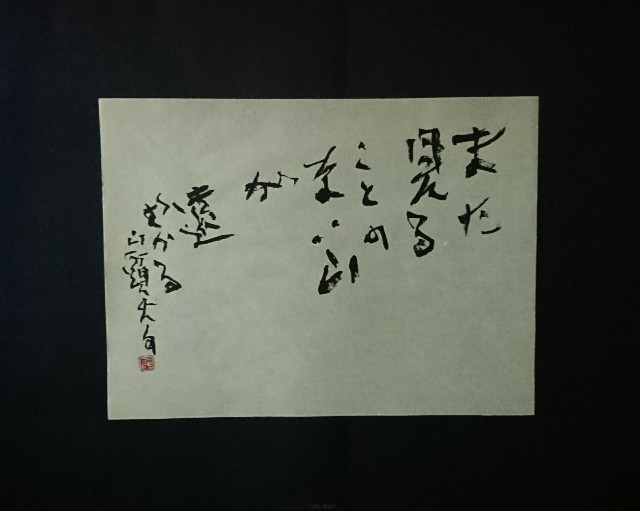 また
見る
ことも
ない山
が
遠
ざかる
山頭火句